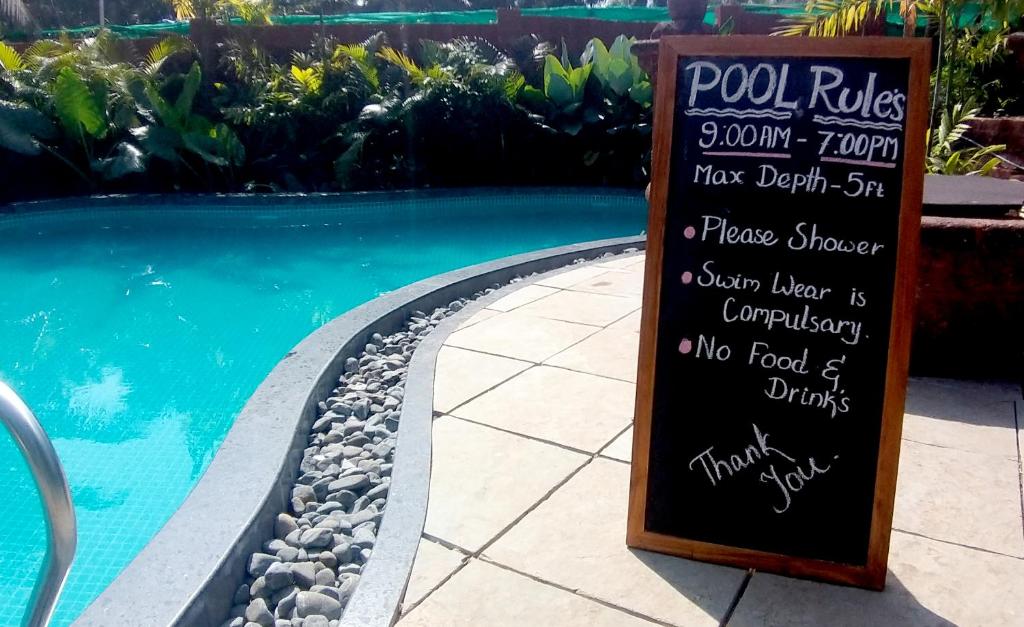 POOL Rule's
9:00AM - 7:00PM
Max Depth - 5ft
• Please Shower
• Swim Wear is
Compulsary.
• No Food &
Drink's
Thank
You.